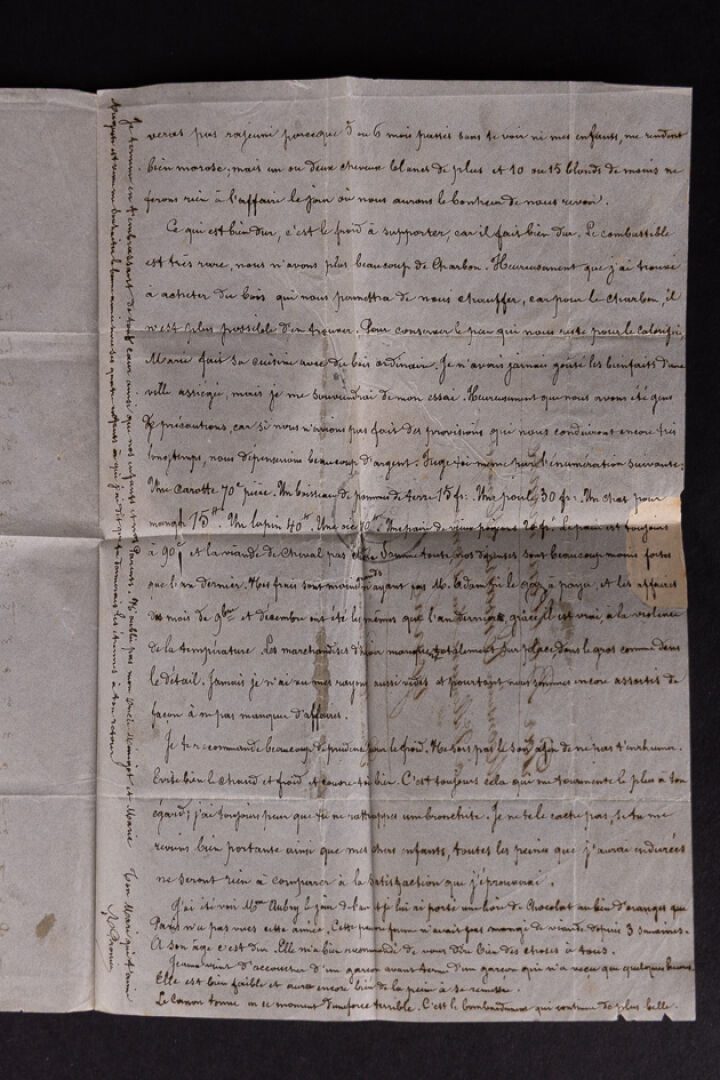 verras pas rajeuni parceque 5 ou 6 mois passés sans te voir ni mes enfants, me rendent
bien morose, mais un ou deux cheveux blancs de plus et 10 ou 15 blonds de moins ne
ferons rien à l'affaire le jour où nous aurons le bonheur de nous revoir.
Ce qui est bien dur, c'est le froid à supporter, car il fait bien dur. Le combustible
est très rare, nous n'avons plus beaucoup de Charbon. Heureusement que j'ai trouvé
à acheter du bois qui nous permettra de nous chauffer, car pour le charbon, il
n'est plus possible d'en trouver. Pour conserver le peu qui nous reste pour le calorifère
Marie fait sa cuisine avec du bois ordinair. Je n'avais jamais goûté les bienfaits d'une
ville assiégé, mais je me souviendrai de mon essai. Heureusement que nous avons été gens
de précautions, car si nous n'avions pas fait des provisions qui nous conduiront encore très
longtemps, nous dépenserions beaucoup d'argent. Juge toi même sur l'énumération suivante:
Une carotte 70c pièce. Un boisseau de pommes de terre 15 fr. Une poule 30 fr. Un chat pour
manger 15 fr. Un lapin 40 fr. Une oie Une pair de vieux pigeons fr. Le pain est toujours
à 90c et la viande de Cheval pas Somme toute, nos dépenses sont beaucoup moins fortes
que l'an dernier. Mes frais sont moins ayant pas M. Adam ni le gaz à payer, et les affaires
des mois de 9bre et décembre ont été les mêmes que l'an dernier, grâce il est vrai, à la violence
de la température. Les marchandises d'hiver manquent totalement sur place dans le gros comme dans
le détail. Jamais je n'ai vu mes rayons aussi vides et pourtant nous sommes encore assortis de
façon à ne pas manquer d'affaires.
Je te recommande beaucoup de prudence pour le froid. Ne sors pas le soir afin de ne pas t'enrhumer.
Evite bien le chaud et froid et couvre toi bien. C'est toujours cela qui me tourmente le plus à ton
égard; j'ai toujours peur que tu ne rattrappes une bronchite. Je ne te le cache pas, si tu me
reviens bien portante ainsi que mes chers enfants, toutes les peines que j'aurai endurées
ne seront rien à comparer à la satisfaction que j'éprouverai.
J'ai été voir Mme Aubry le jour de l'an et je lui ai porté une livre de Chocolat au lieu d'oranges que
Paris n'a pas vues cette année. Cette femme n'avait pas mangé de viande depuis 3 semaines.
A son âge c'est dur. Elle m'a bien recommandé de vous dire bien des choses à tous.
vient d'accoucher d'un garçon avant terme d'un garçon qui n'a vécu que quelques heures.
Elle est bien faible et aura encore bien de la peine à se remettre.
Le Canon tonne en ce moment d'une force terrible. C'est le bombardement qui continue de plus belle.
Je termine en t'embrassant de tout coeur ainsi que nos enfants et nos Parents. N'oublie pas mon Oncle et Marie
à qui j'ai dit que tu donnerais les étrennes à ton retour
Ton Mari qui t'aime